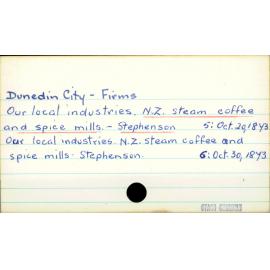 Dunedin City - Firms
Our local industries. N.Z. steam coffee
and spice mills. - Stephenson 5: Oct. 29, 1843
Our local industries. N.Z. steam coffee and
spice mills - Stephenson. 6: Oct. 30, 1843